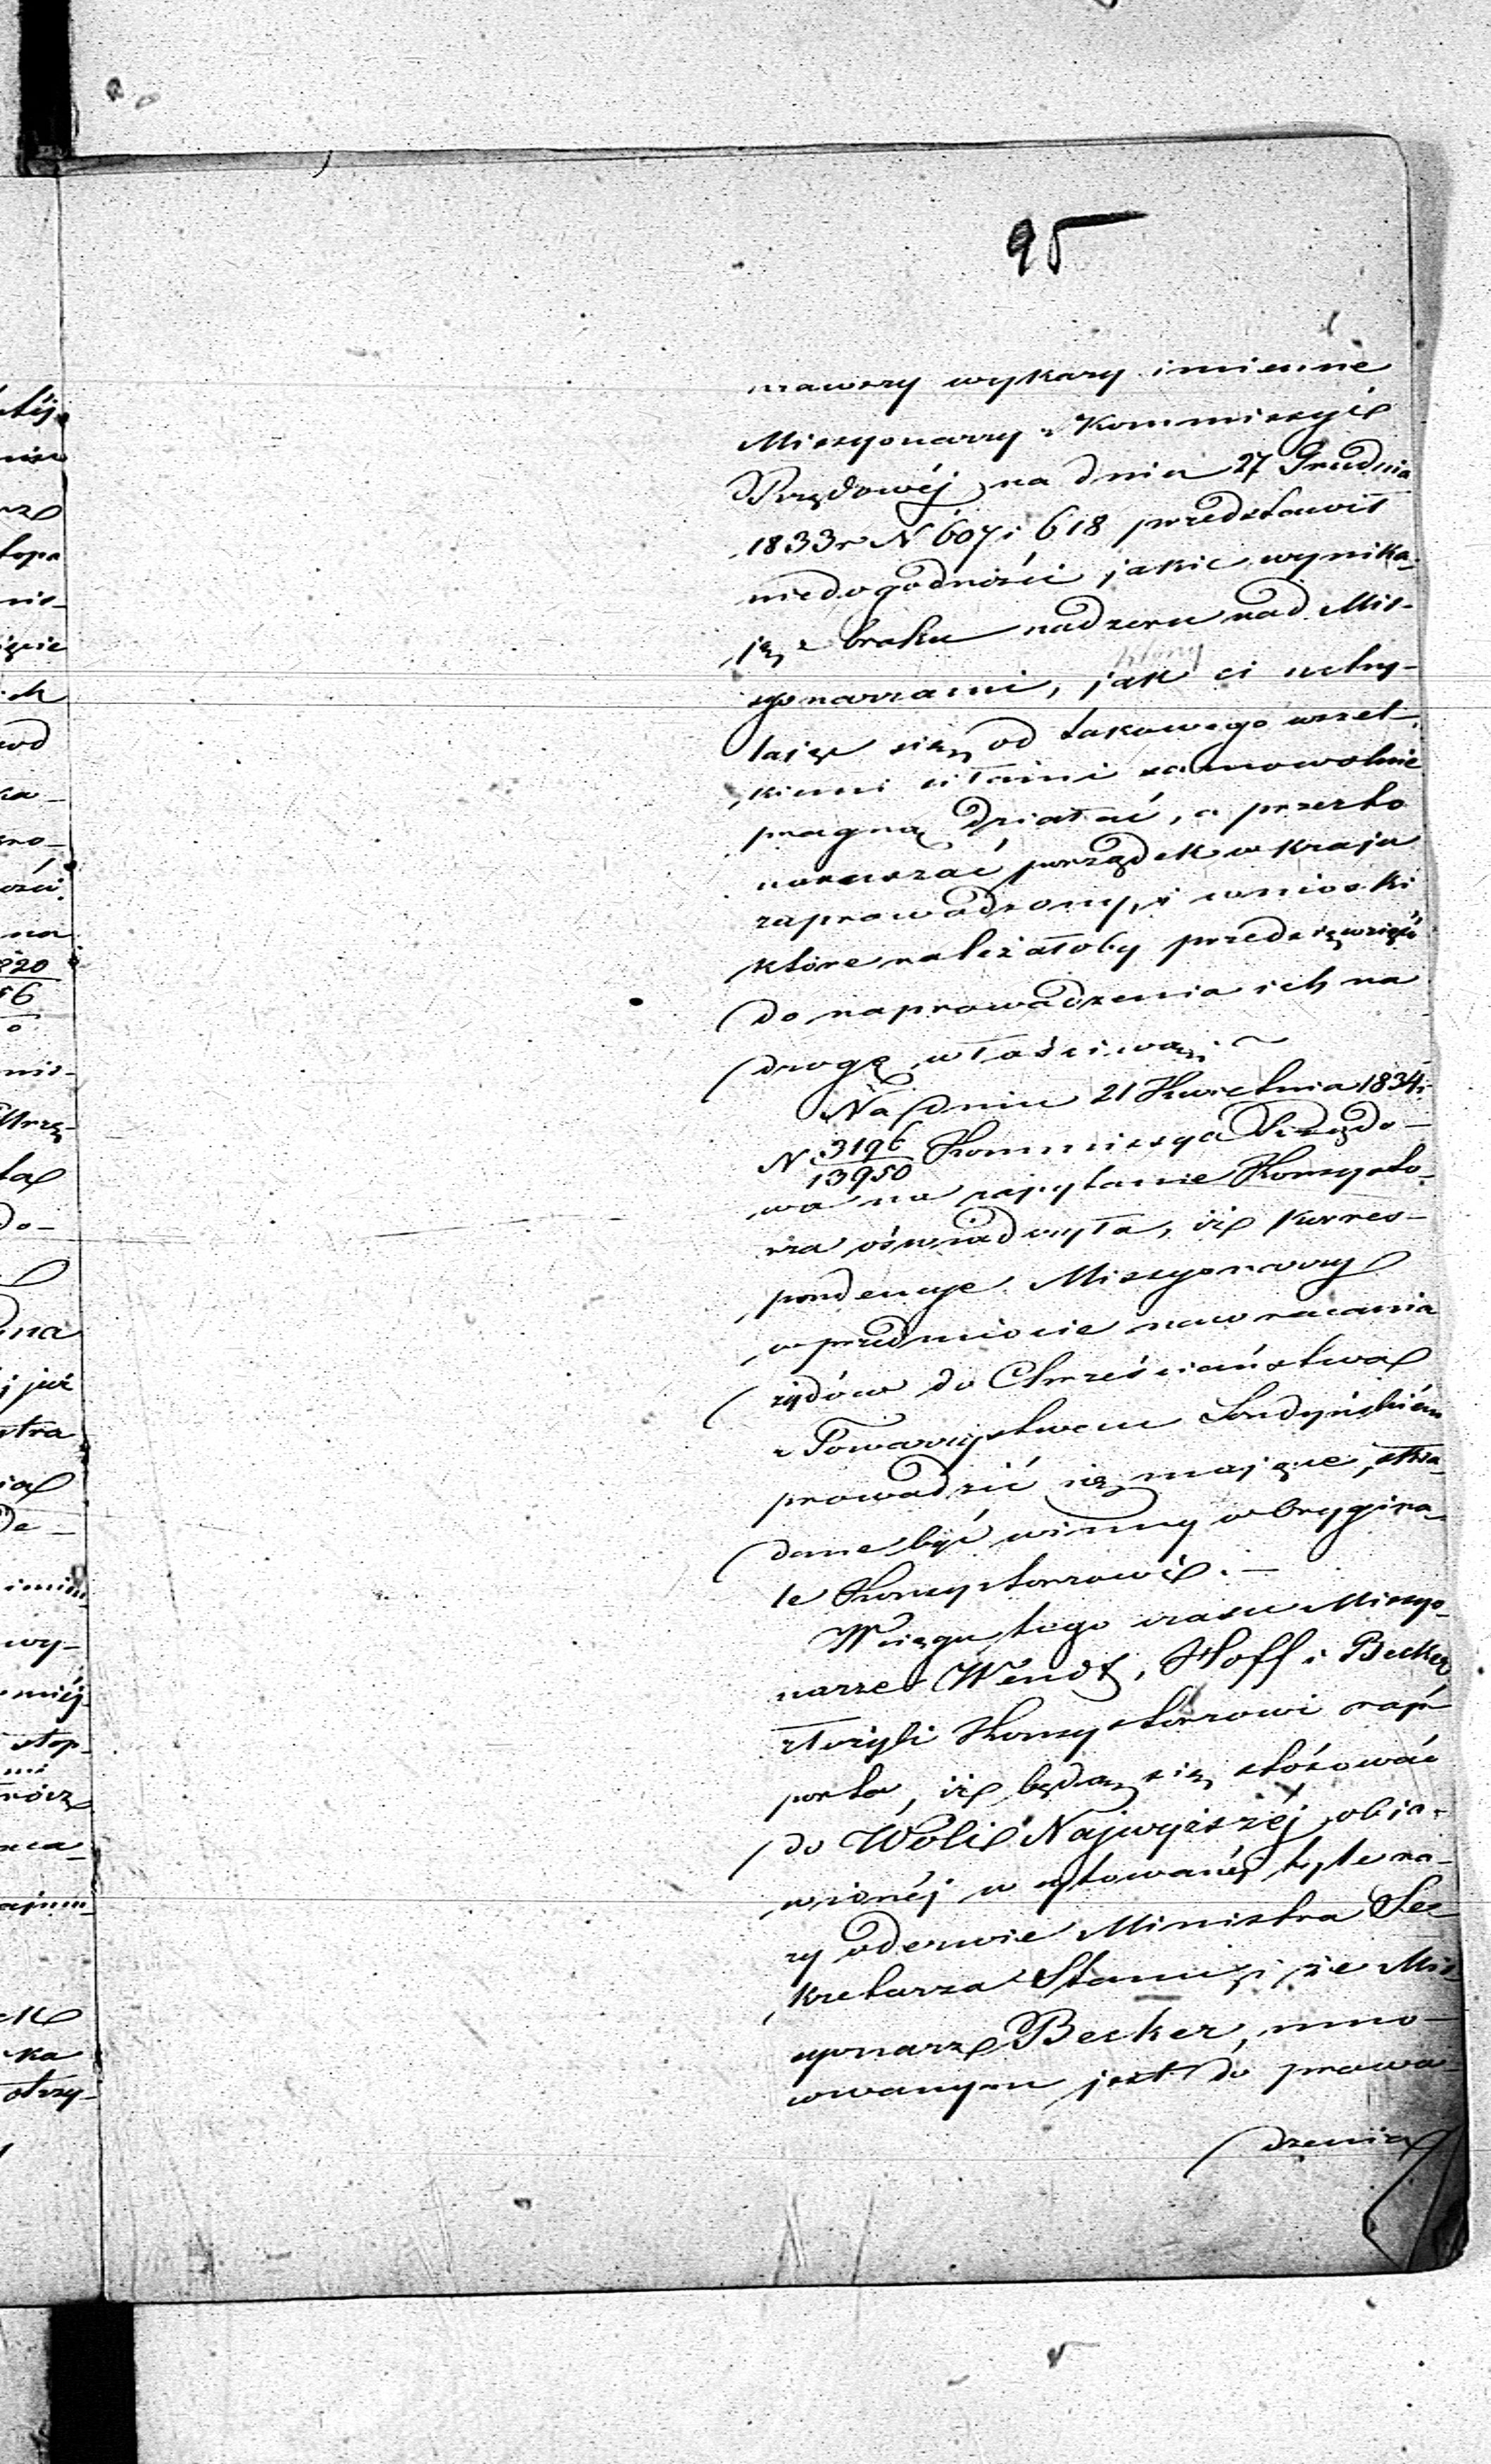 95
mawszy wykazy imienne
Missyonarzy z Kommissyi
Rządowéj na dniu 27 Grudnia
1833 r N 607 i 618 przedstawił
niedogodności jakie wynika-
ją z braku nadzoru nad Mis-
syonarzami, jak ci uchy-
którzy
lając się od takowego wszel-
kiemi siłami samowolnie
pragną działać, a przeto
naruszać porządek w kraju
zaprowadzony, i wnioski
które należałoby przedsięwziąść
do naprowadzenia ich na
drogę właściwą.
Na dniu 21 Kwietnia 1834 r
N 3196/13950 Kommissya Rządo-
wa na zapytanie Konsysto-
rza oświadczyła, iż korres-
pondencye Missyonarzy
w przedmiocie nawracania
żydów do Chrześciaństwa
z Towarzystwem Londyńskiém
prowadzić się mające, skła-
dane być winny w Orygina-
le Konsystorzowi. —
W ciągu tego czasu Missyo-
narze Wendt, Hoff i Becker
złożyli Konsystorzowi rap-
porta, iż będą się stósować
do Woli Najwyższéj obja-
wionéj w cytowanéj tyle ra-
zy odezwie Ministra Sek-
kretarza Stanu, i że Mis-
syonarz Becker, umo-
cowanym jest do prowa-
dzenia